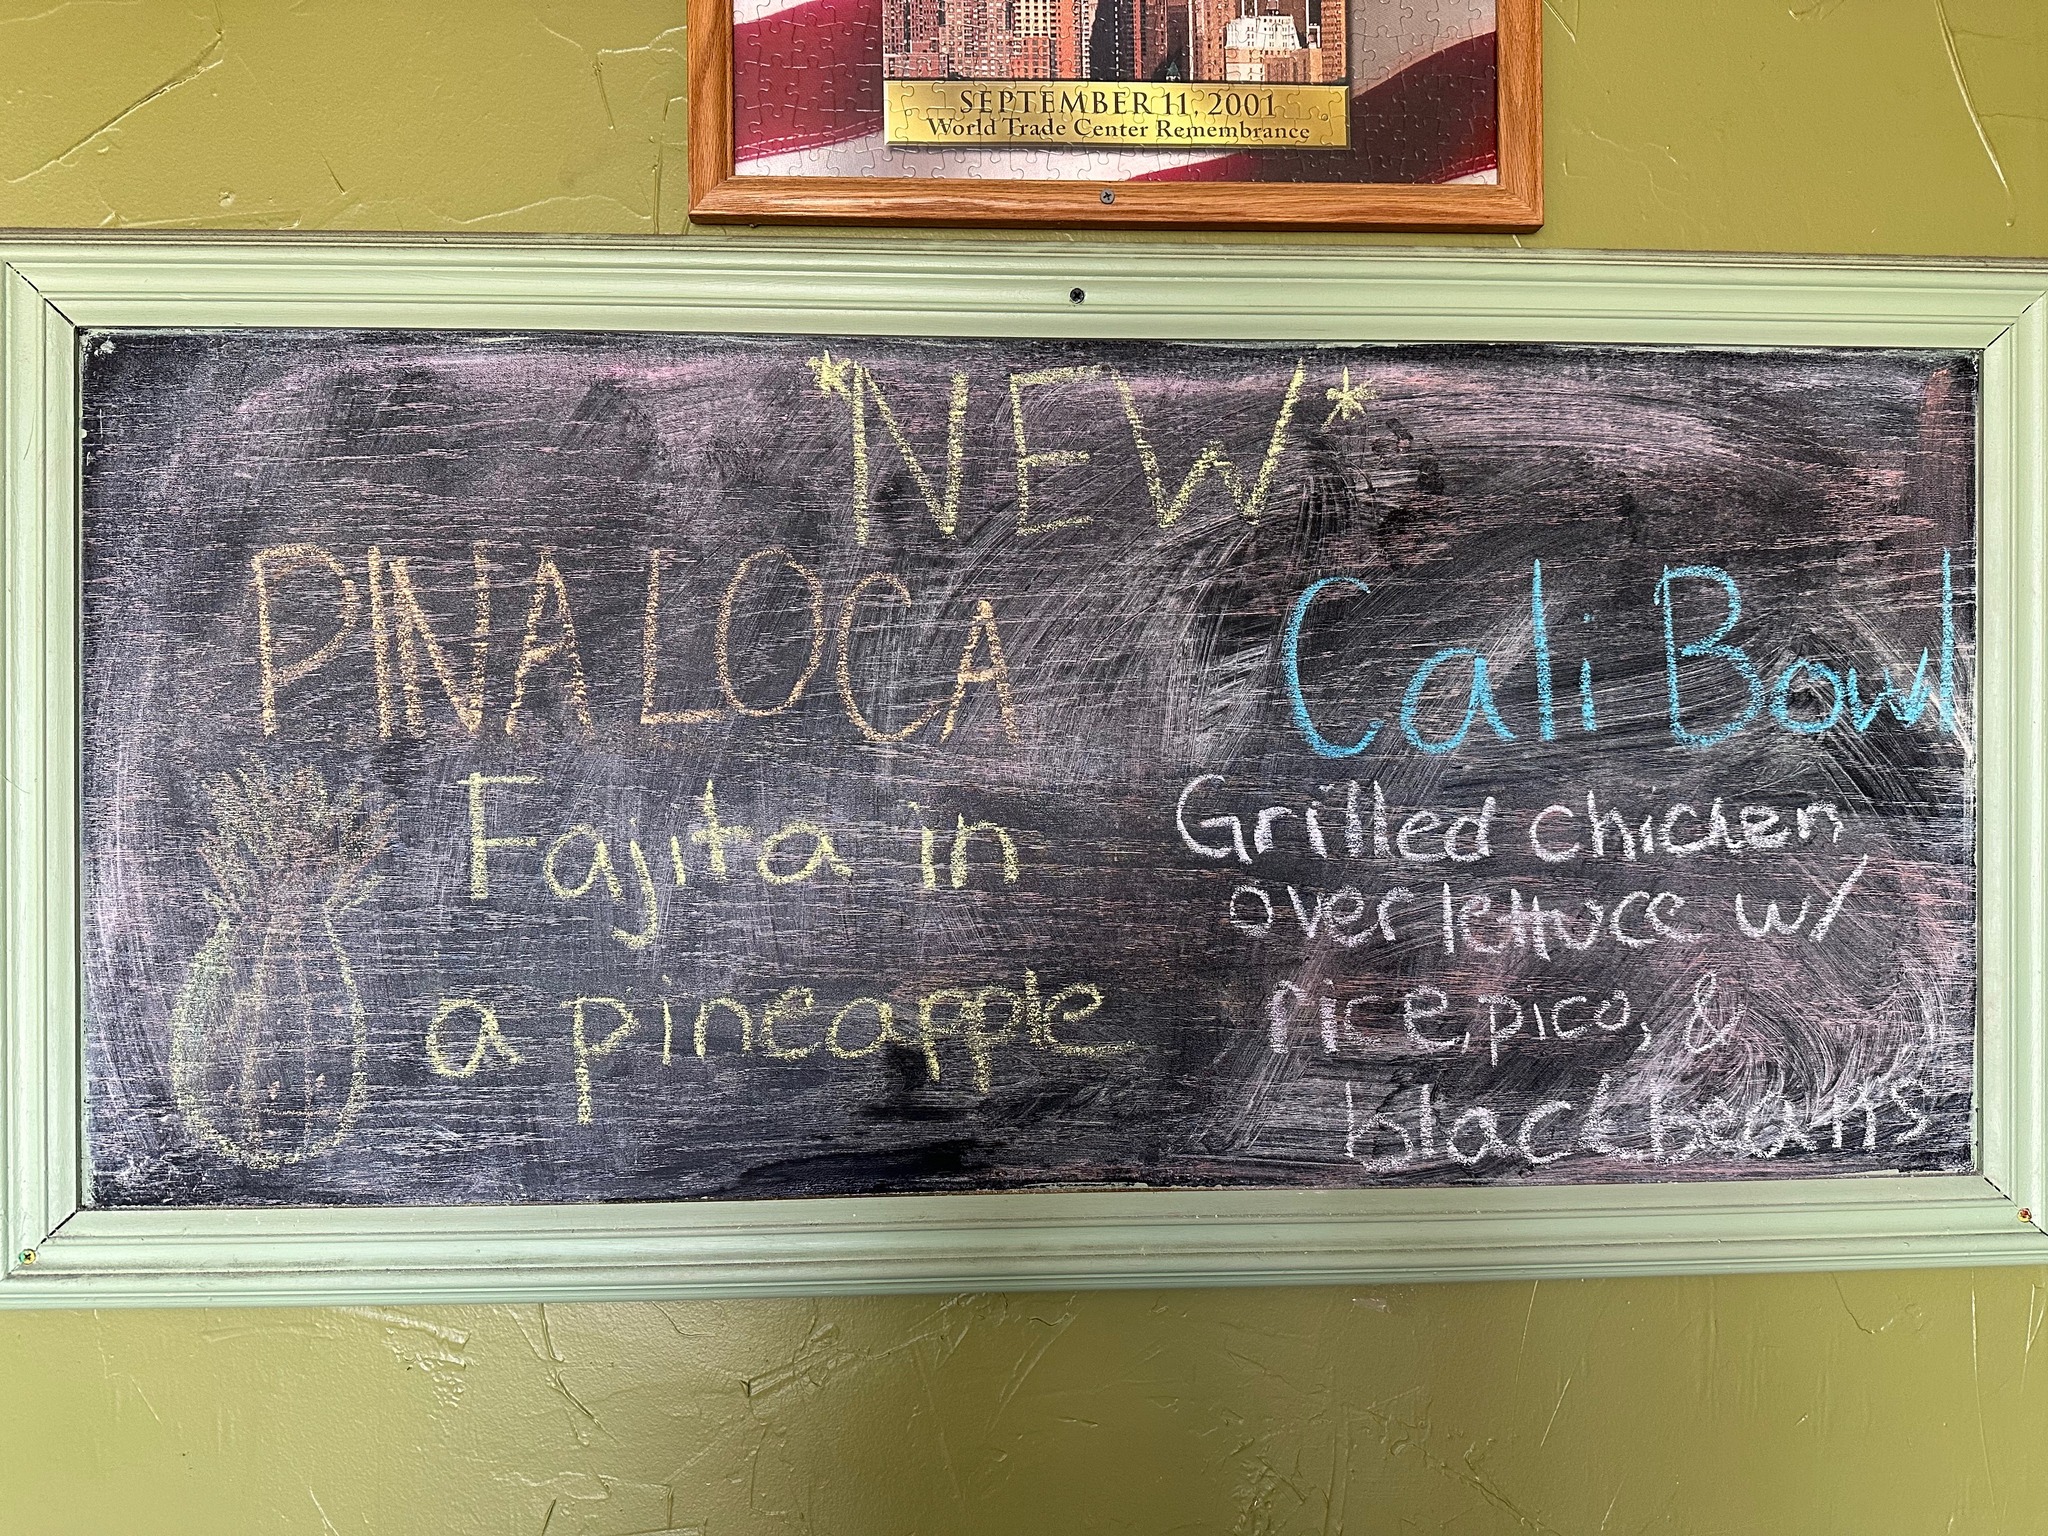 SEPTEMBER 11, 2001
World Trade Center Remembrance
*NEW*
PINA LOCA
Fajita in
a pineapple
Cali Bowl
Grilled chicken
over lettuce w/
rice, pico, &
black beans